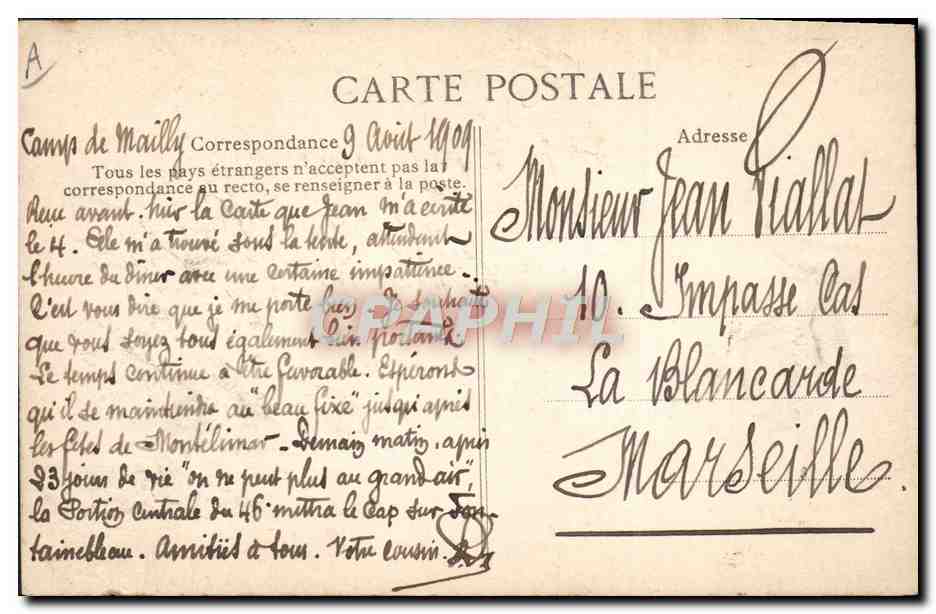 A
CARTE POSTALE
Camp de Mailly Correspondance 9 Août 1909
Tous les pays étrangers n'acceptent pas la
correspondance au recto, se renseigner à la poste.
Reçu avant-hier la Carte que Jean m'a écrite
le 4. Elle m'a trouvé sous la tente, attendant
l'heure du dîner avec une certaine impatience.
C'est vous dire que je me porte bien. Je souhaite
que vous soyez tous également bien portants.
Le temps continue à être favorable. Espérons
qu'il se maintiendra au "beau fixe" jusqu'après
les fêtes de Montélimar. Demain matin, après
23 jours de vie "on ne peut plus au grand air",
la Portion Centrale du 46e mettra le Cap sur Fon-
tainebleau. Amitiés à tous. Votre cousin.
Adresse
Monsieur Jean Viallat
10. Impasse Cas
La Blancarde
Marseille.
CPAPHIL